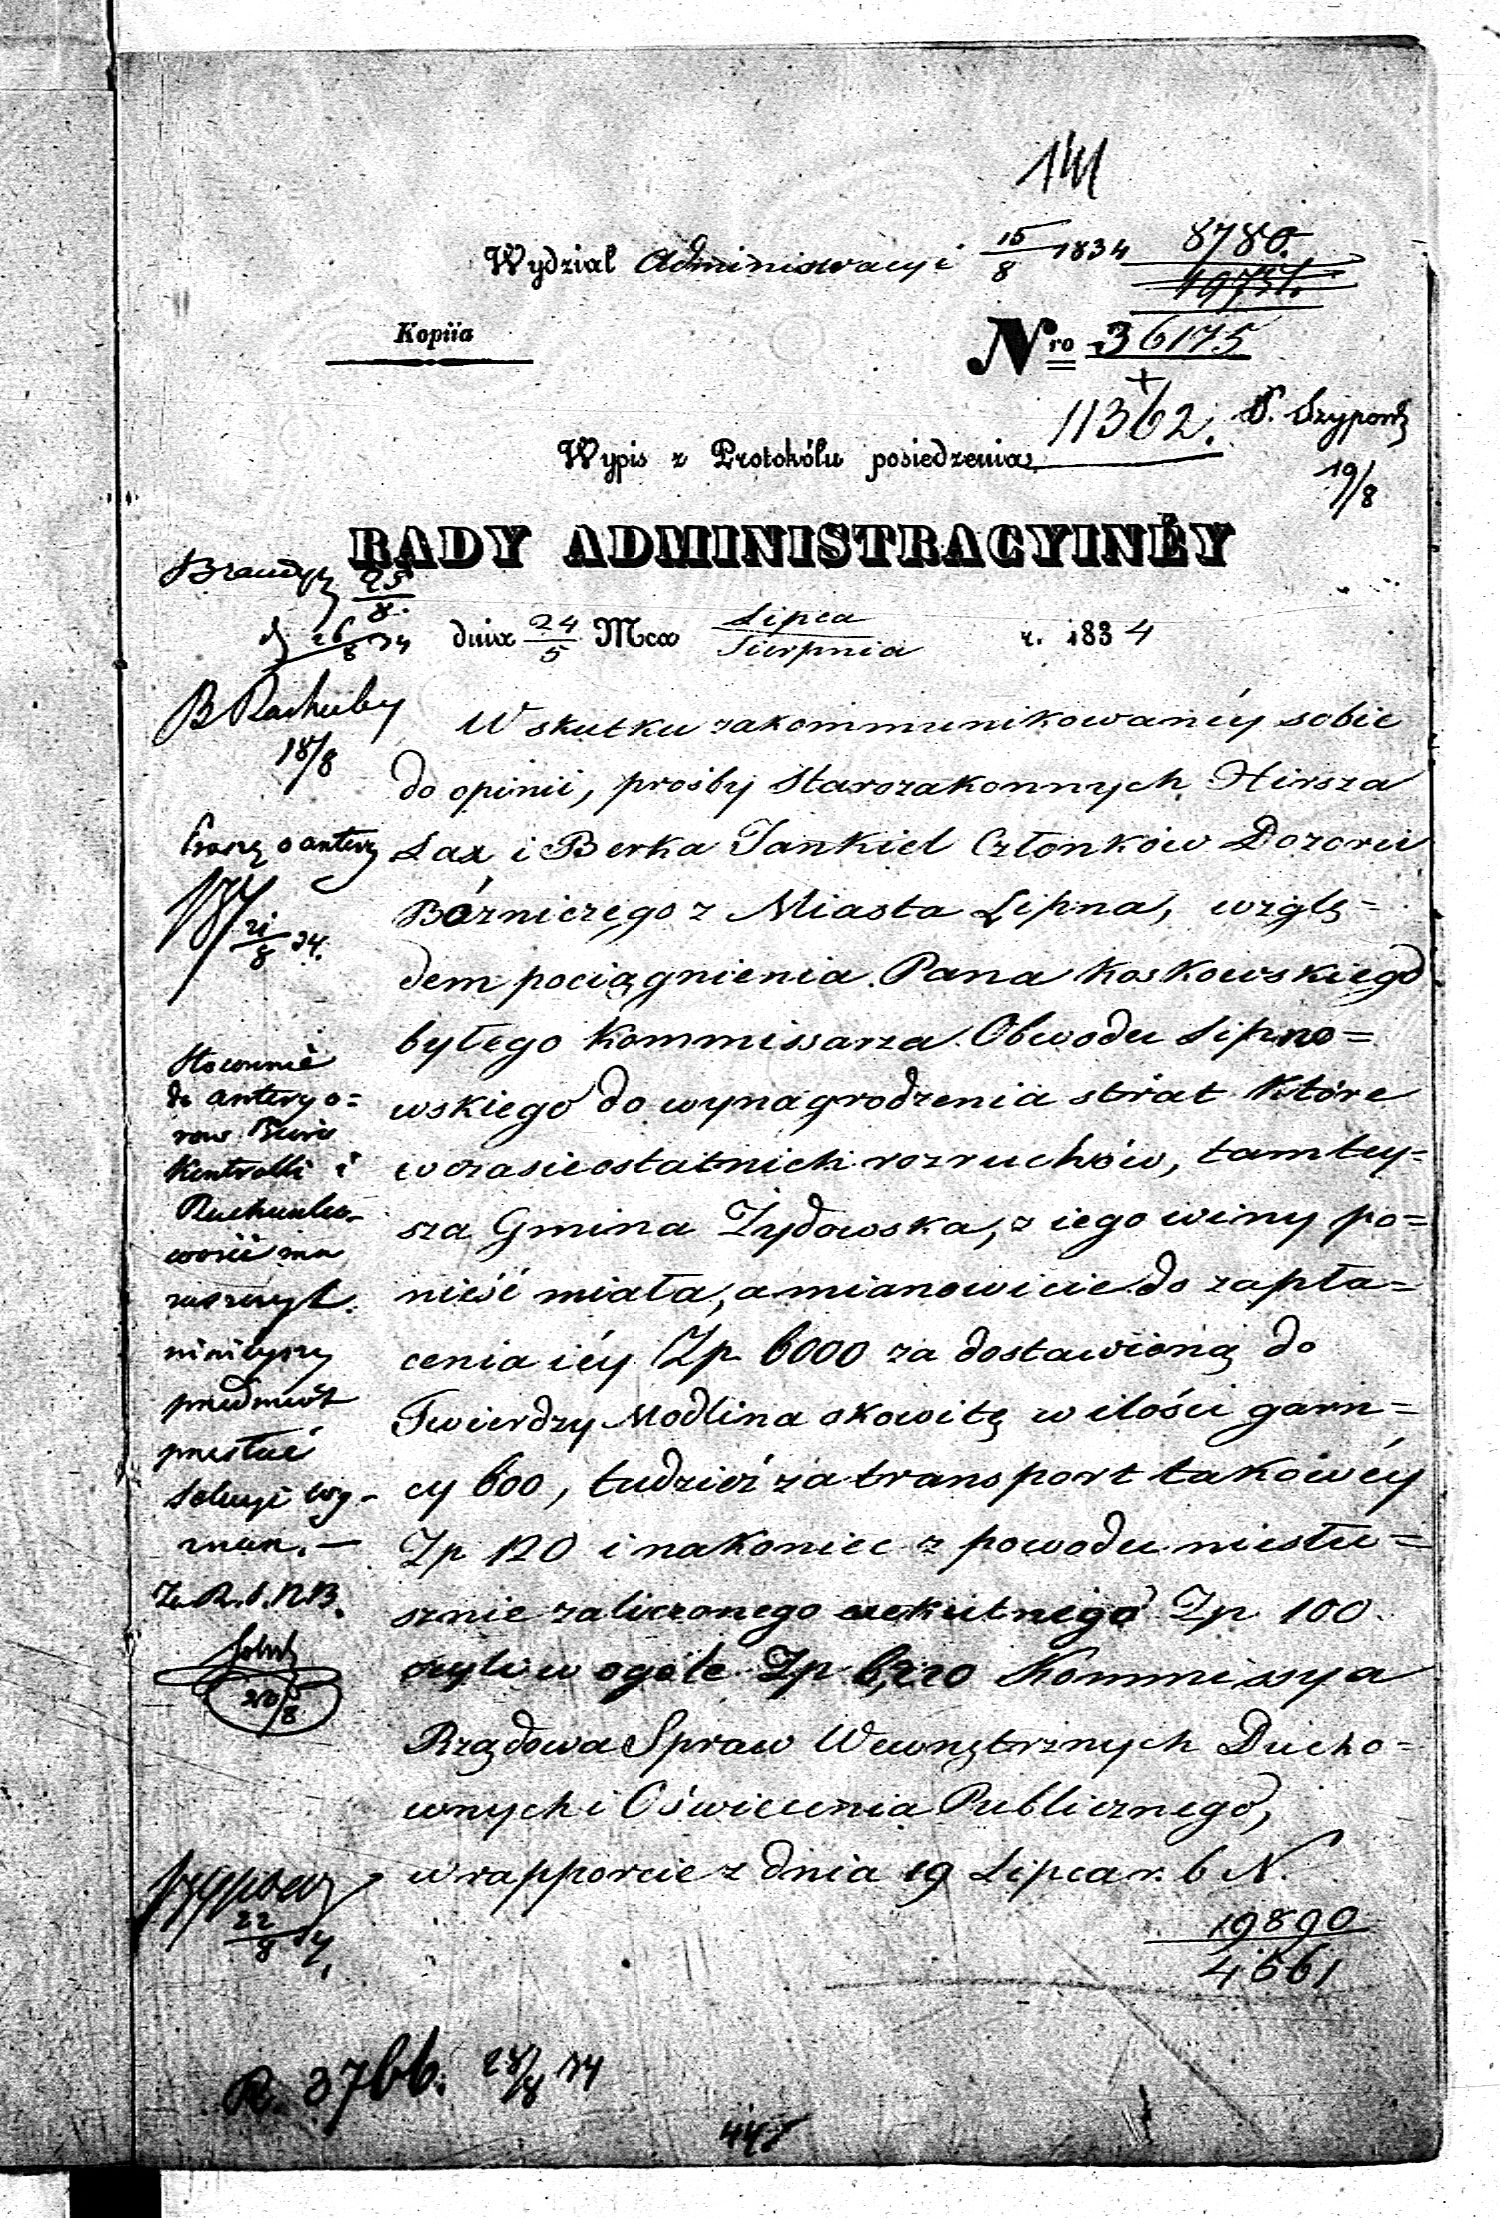 141
Wydział Administracyi 15/8 1834 8780.
Kopiia
Nro 36175
11362. 
19/8
Wypis z Protokółu posiedzenia
RADY ADMINISTRACYINÉY
dnia 24/5 Mca Lipca/Sierpnia r. 1834
25/8.
26/8 34
B Rachuby
18/8
Proszę o antery
21/8 34.
Stosownie
do anteryo=
row Biura
Kontrolli i
Rachunko-
wości ma
zaszczyt
ninieyszy
przedmiot
przesłać
Sekcyi Wy-
znan. —
20/8
22/8 34.
W skutku zakommunikowanéy sobie
do opinii, prośby Starozakonnych Hirsza
Lax i Berka Jankiel Członków Dozoru
Bóżniczego z Miasta Lipna, wzglę=
dem pociągnienia Pana Koskowskiego
byłego Kommissarza Obwodu Lipno=
wskiego do wynagrodzenia strat które
w czasie ostatnich rozruchów, tamtey=
sza Gmina Żydowska, z iego winy po=
nieść miała, a mianowicie do zapła=
cenia iéy Zp 6000 za dostawioną do
Twierdzy Modlina okowitę w ilości garn=
cy 600, tudzież za transport takowéy
Zp 120 i nakoniec z powodu niesłu=
sznie zaliczonego exekutnego Zp 100
czyli w ogóle Zp 6,220 Kommissya
Rządowa Spraw Wewnętrznych Ducho=
wnych i Oświecenia Publicznego,
w rapporcie z dnia 19 Lipca r. b N.
19890/4661
R. 3766. 28/8 34